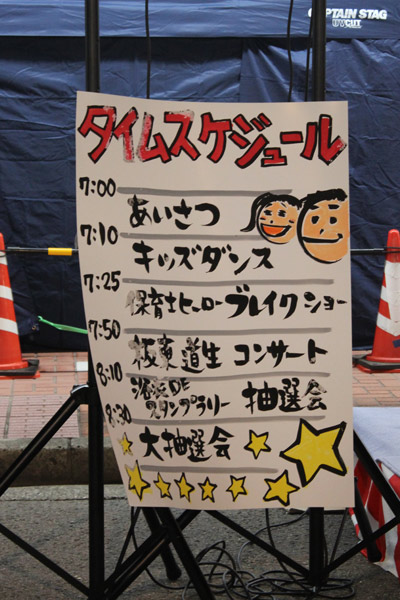 CAPTAIN STAG
UV CUT
タイムスケジュール
7:00
あいさつ
7:10
キッズダンス
7:25
保育士ヒーローブレイクショー
7:50
板東道生 コンサート
8:10
DE
スタンプラリー 抽選会
8:30
大抽選会